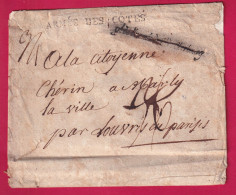 ARMÉE DES COTES
A la citoyenne
Chérin a Marly
la ville
par Louvres en parisis